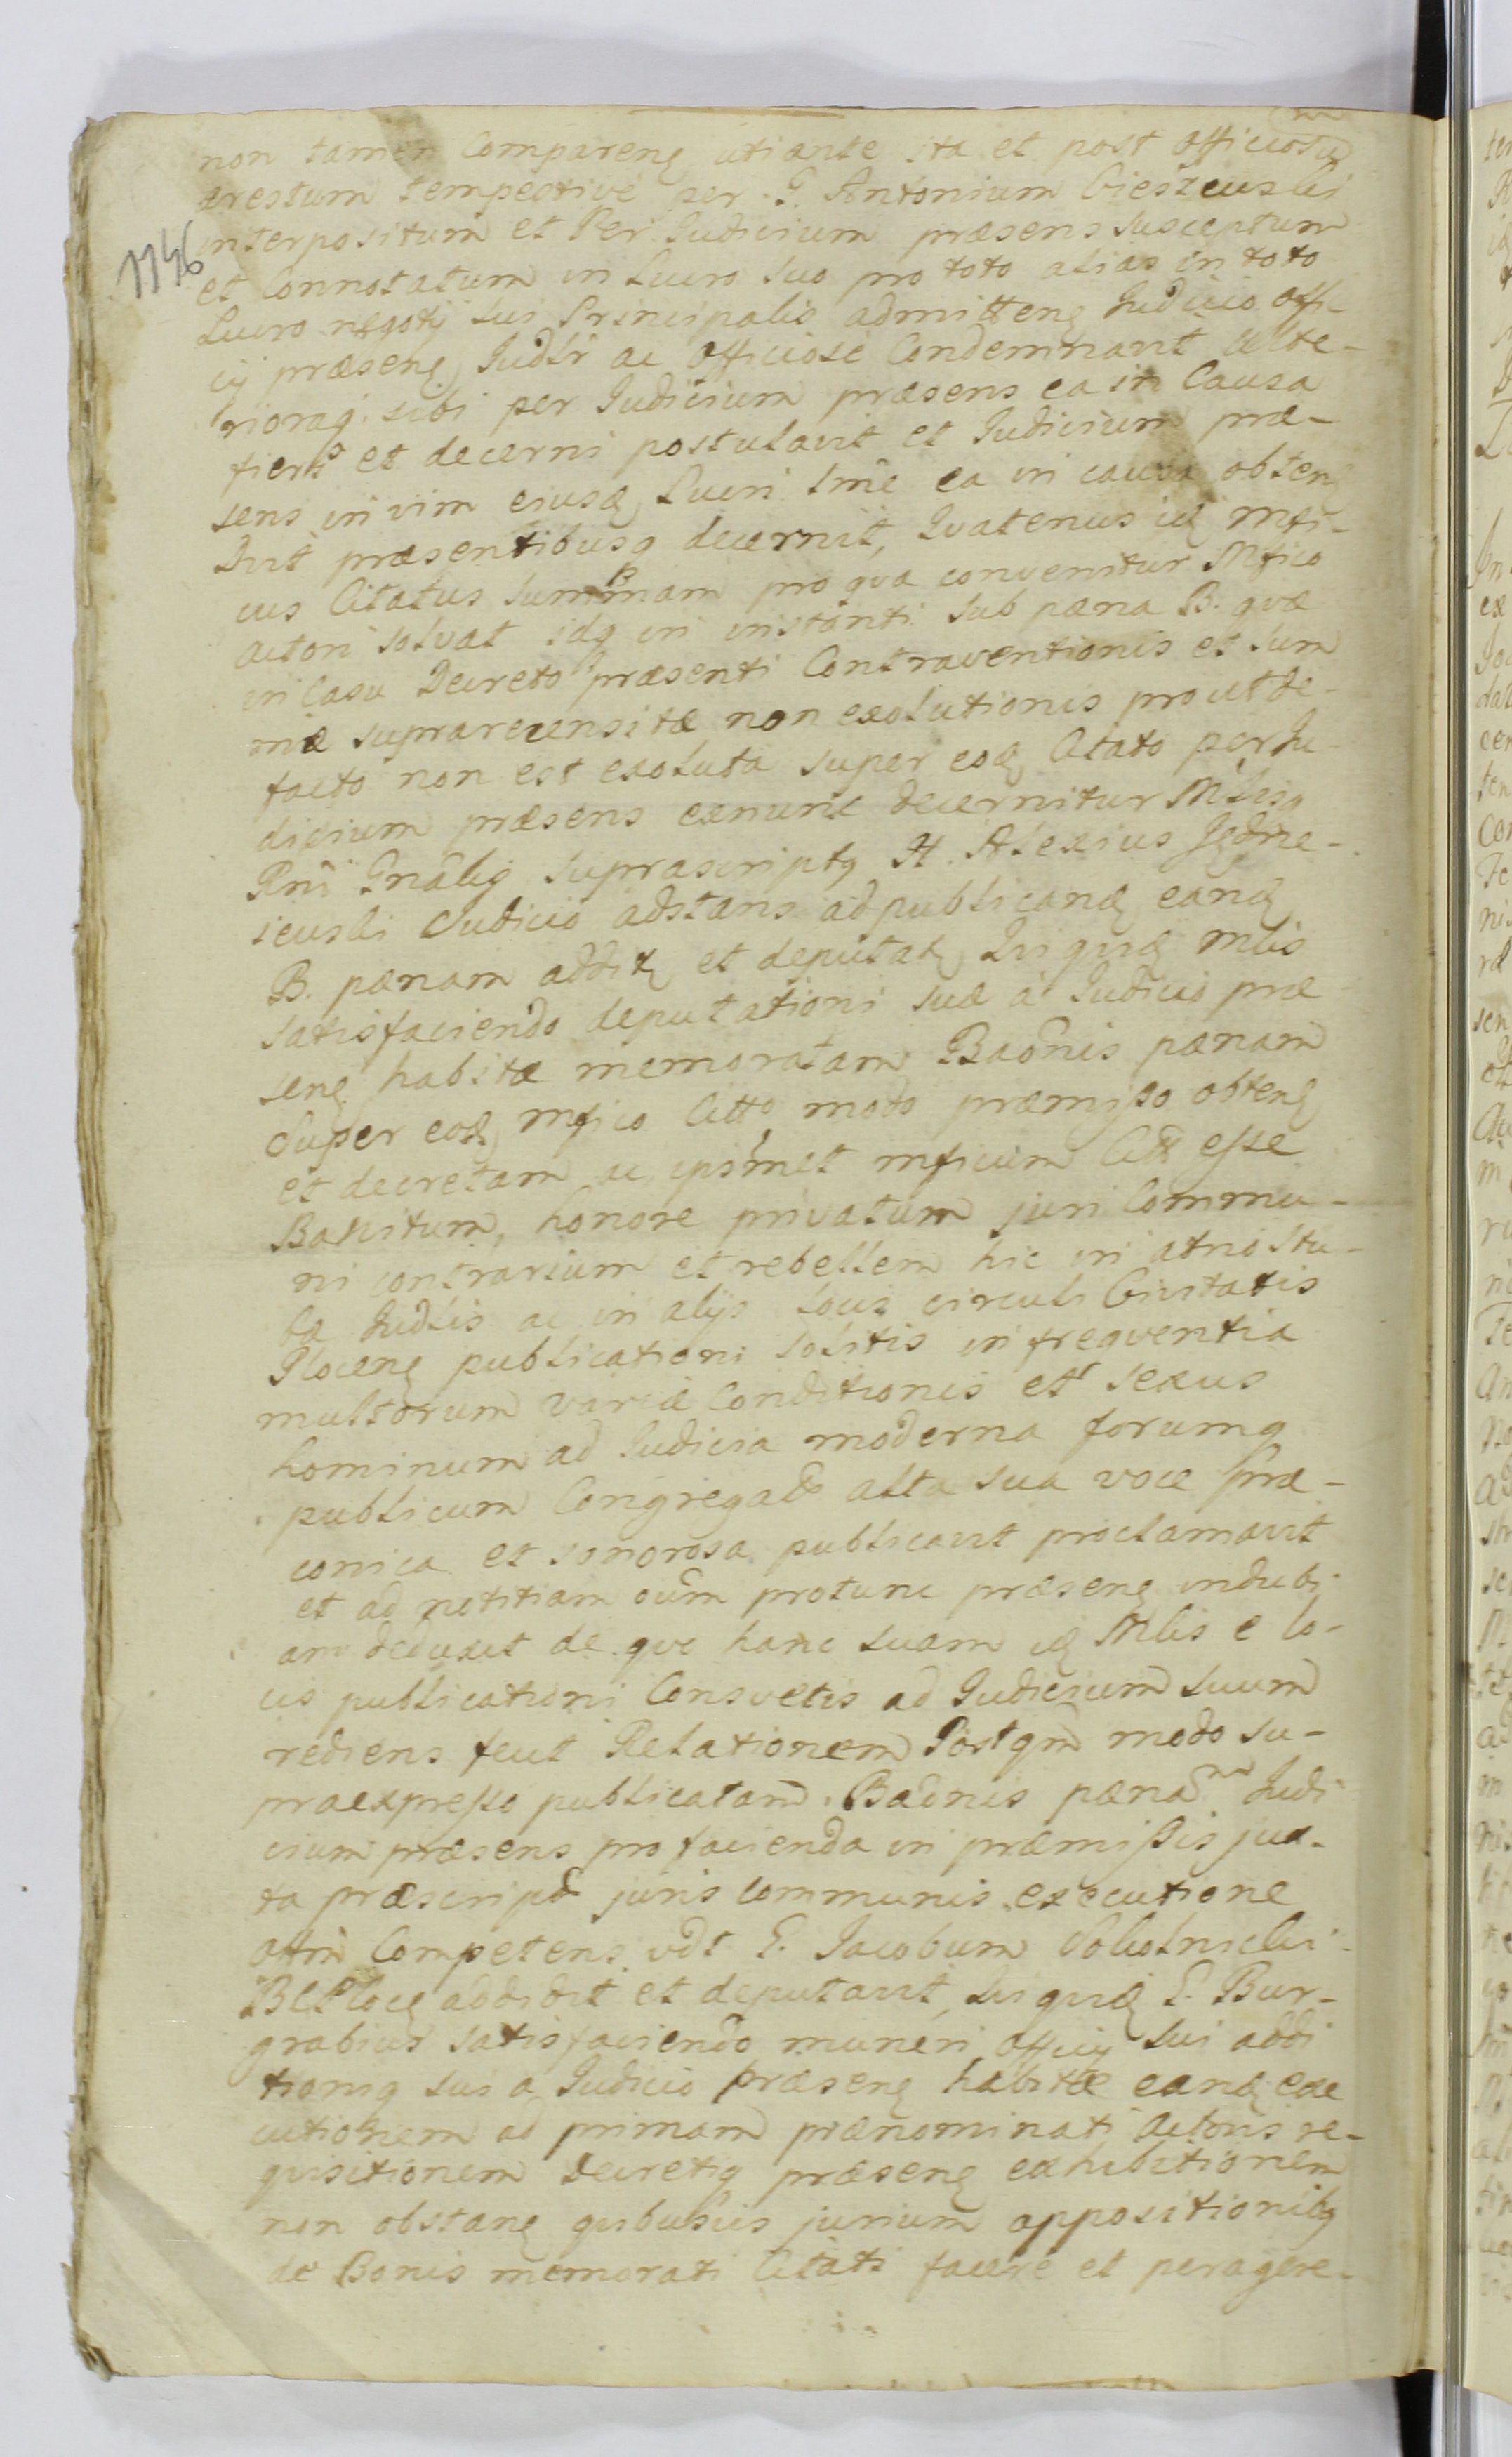 non tamen Comparenę utiante ita et post officiosum
arestum tempestive per G. Antonium Cieszewski
1146
interpositum et Per Judicium præsens susceptum
et Connotatum in Lucro suo pro toto alias in toto
Lucro negotij sui Principalis admittenę Judicio offi-
cij præsenę Judlr ac officiose Condemnavit ulte-
rioraq sibi per Judicium præsens ea in Causa
fieri et decerni postulavit et Judicium præ-
sens in vim eiusdę Lucri sme ea in causa obtenę
Dvt præsentibusq decernit, Qvatenus idę mfi-
cus Citatus summam pro qva convenitur Mfico
actori solvat idq in instanti sub pæna B. qvæ
in Casu Decreto præsenti Contraventionis et sum
mæ suprarecensitæ non exolutionis prout de-
facto non est exoluta super eodę Citato per Ju-
dicium præsens exnunc decernitur Mlisq
Rni Gnâlis suprascriptq H. Alexius Jędrze-
iewski Judicio adstans ad publicandę eandę
B. pænam additę et deputatę Qui quidę mlis
satisfaciendo deputationi suæ a Judicio præ
senę habitæ memoratam Baônis pænam
super eodę mfico Citto modo præmisso obtenę
et decretam ac ipsummet mficum Citt esse
Banitum, honore privatum juri Commu-
ni contrarium et rebellem hic in atrio Stu-
ba Judlis ac in alijs locis circuli Civitatis
Plocenę publicationi solitis in freqventia
multorum variæ Conditionis et sexus
hominum ad Judicia moderna forumq
publicum Congregato alta sua voce præ-
conica et sonorosa publicavit proclamavit
et ad notitiam oûm protunc præsenę indubi
am deduxit de qvo hanc suam idę Mlis e lo-
cis publicationi Consvetis ad Judicium suum
rediens fecit Relationem Postqm modo su-
praexpresso publicatam Baônis pænam Judi
cium præsens pro facienda in præmissis jux-
ta præscript juris communis executione
Competens vdt G. Jacobum
BCPlocę addidit et deputavit, Qui quidę G. Bur-
grabius satisfaciendo muneri officij sui addi
tioniq sui a Judicio præsenę habitæ eandę exe
cutionem ad primam prænominati Actoris re-
quisitionem Decretiq præsenę exhibitionem
non obstanę quibusvis jurium oppositionibq
de Bonis memorati Citati facere et peragere-